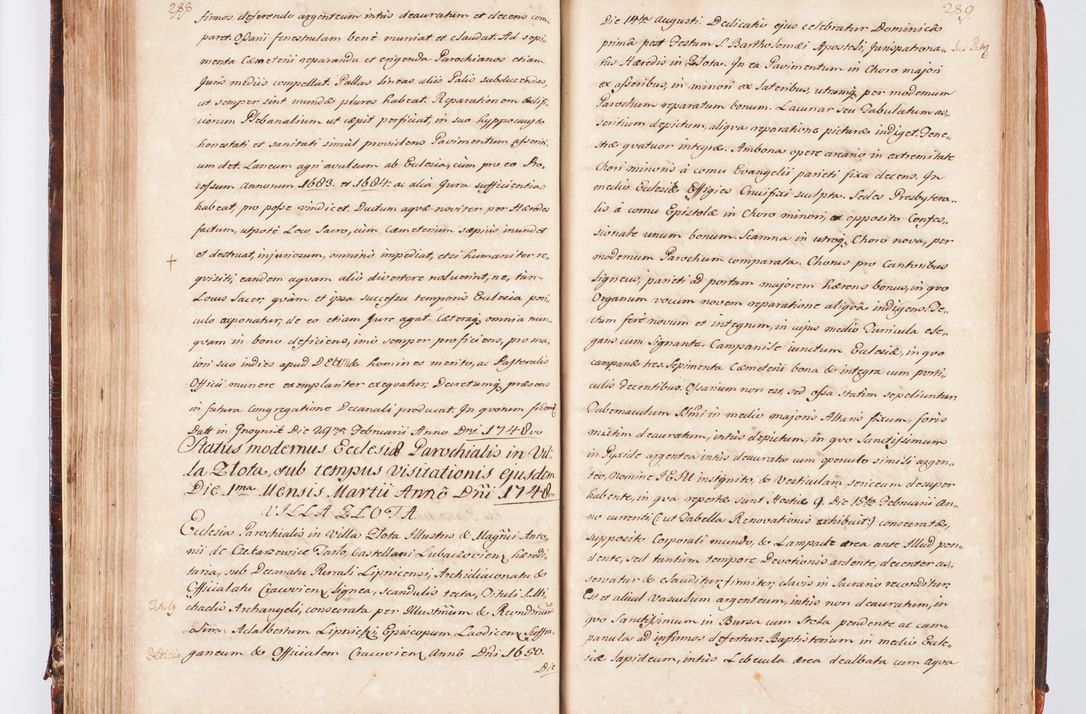 288
firmos deferendo argenteum intùs deauratum et decens com,
paret. Ossarii fenestrulam benè muniat et claudat. Ad sepi,
menta Cæmeterii reparanda et erigenda Parochianos etiam
Juris mediis compellat. Pallas lineas aliis Paliis subducendas,
ut semper sint mundæ plures habeat. Reparationem Ædifi,
ciorum Plebanalium ut cæpit perficiat, in suo hyppocausto
honestati et sanitati simul providens Pavimentum asseri,
um det. Laneum agri avulsum ab Ecclesia, cùm pro eo Pro,
cessum Annorum 1683. et 1684. ac alia Jura sufficientia
habeat, pro posse vindicet. Ductum aquæ noviter per Hæredes
factum, utpotè Loco Sacro, cùm Cæmeterium sæpius inundet
et destruat, injuriosum, omninò impediat, etsi humaniter re,
quisiti, eandem aquam aliò divertere noluerint, ne, tàm
Locus Sacer, quàm et ipsa successu temporis Ecclesia peri,
culo exponatur, de eo etiam Jure agat. Cæteraq omnia nun,
quam in bono deficiens, imò semper proficiens, pro ma,
iori suo indies apud DEUM & homines merito, ac Pastoralis
Officii munere exemplariter exequatur, Decretumq præsens
in futura Congregatione Decanali producat. In quorum fidem
Datt in Groynik Die 29na Februarii Anno Dni 1748vo
Status modernus Ecclesiæ Parochialis in Vil,
la Zlota, sub tempus Visitationis ejusdem
Die 1ma Mensis Martii Annô Dni 1748vo
VILLA ZLOTA
Ecclesia Parochialis in Villa Zlota Illustris & Magnci Anto,
nii de Tarlo, Castellani hæredi,
taria, sub Decanatu Rurali Lipnicensi, Archidiaconatu &
Officialatu Cracovien, lignea, Scandulis tecta, Tituli S. Mi,
Tituly
chaelis Archangeli, consecrata per Illustrissimum & Reverendissimum
Adalbertum Lipnicki, Episcopum Laodicen, Suffra,
Dedicao
ganeum & Officialem Cracovien Annô Dni 1650.
Die
289
Die 14ta Augusti Dedicatio ejus celebratur Dominicâ
primâ post Festum S. Bartholomæi Apostoli, Jurispatrona,
Jus Patr
tûs Hæredis in Zlota. In ea Pavimentum in Choro majori
ex asseribus, in minori ex lateribus, utrumq per modernum
Parochum reparatum bonum. Lacunar seu Tabulatum as,
seritium depictum, aliqua reparatione picturæ indiget. Fene,
stræ quatuor integræ. Ambona opere arcario in extremitate
Chori minoris à cornu Evangelii parieti fixa decens. In
medio Ecclesiæ Effigies Crucifixi sculpta. Sedes Presbytera,
lis à cornu Epistolæ in Choro minori, ex opposito Confes,
sionale unum bonum. Scamna in utroq Choro nova, per
modernum Parochum comparata. Chorus pro Cantoribus
ligneus, parieti ad portam majorem hærens bonus, in quo
Organum vocum novem reparatione aliquâ indigens. Te,
ctum ferè novum et integrum, in cujus medio Turricula ele,
gans cum Signanta. Campanile iunctum Ecclesiæ, in quo
campanæ tres. Sepimenta Cæmeterii bona & integra cum porti,
culis decentibus. Ossarium non est, sed ossa statim sepeliuntur.
Tabernaculum Ssmi in medio majoris Altaris fixum, foris
multum deauratum, intùs depictum, in quo Sanctissimum
in Pyxide argentea intùs deaurata cum operculo simili argen,
teo, Nomine JESU insignito, & Vesticulam sericeam desuper
habente, in qua repertæ sunt Hostiæ 9. Die 15ta Februarii An,
no currenti (ut Tabella Renovationis exhibuit) consecratæ,
supposito Corporali mundo, & Lampade ærea ante Illud pen,
dente, sed tantùm tempore Devotionis ardente, decenter as,
servatur & clauditur firmiter, clavis in Sacrario reconditur.
Est et aliud Vasculum argenteum, intùs non deauratum, in
quo Sanctissimum in Bursa cum Stola pendente ac cam,
panula ad infirmos defertur. Baptisterium in medio Eccle,
siæ lapideum, intùs Lebecula ærea dealbata cum aqua